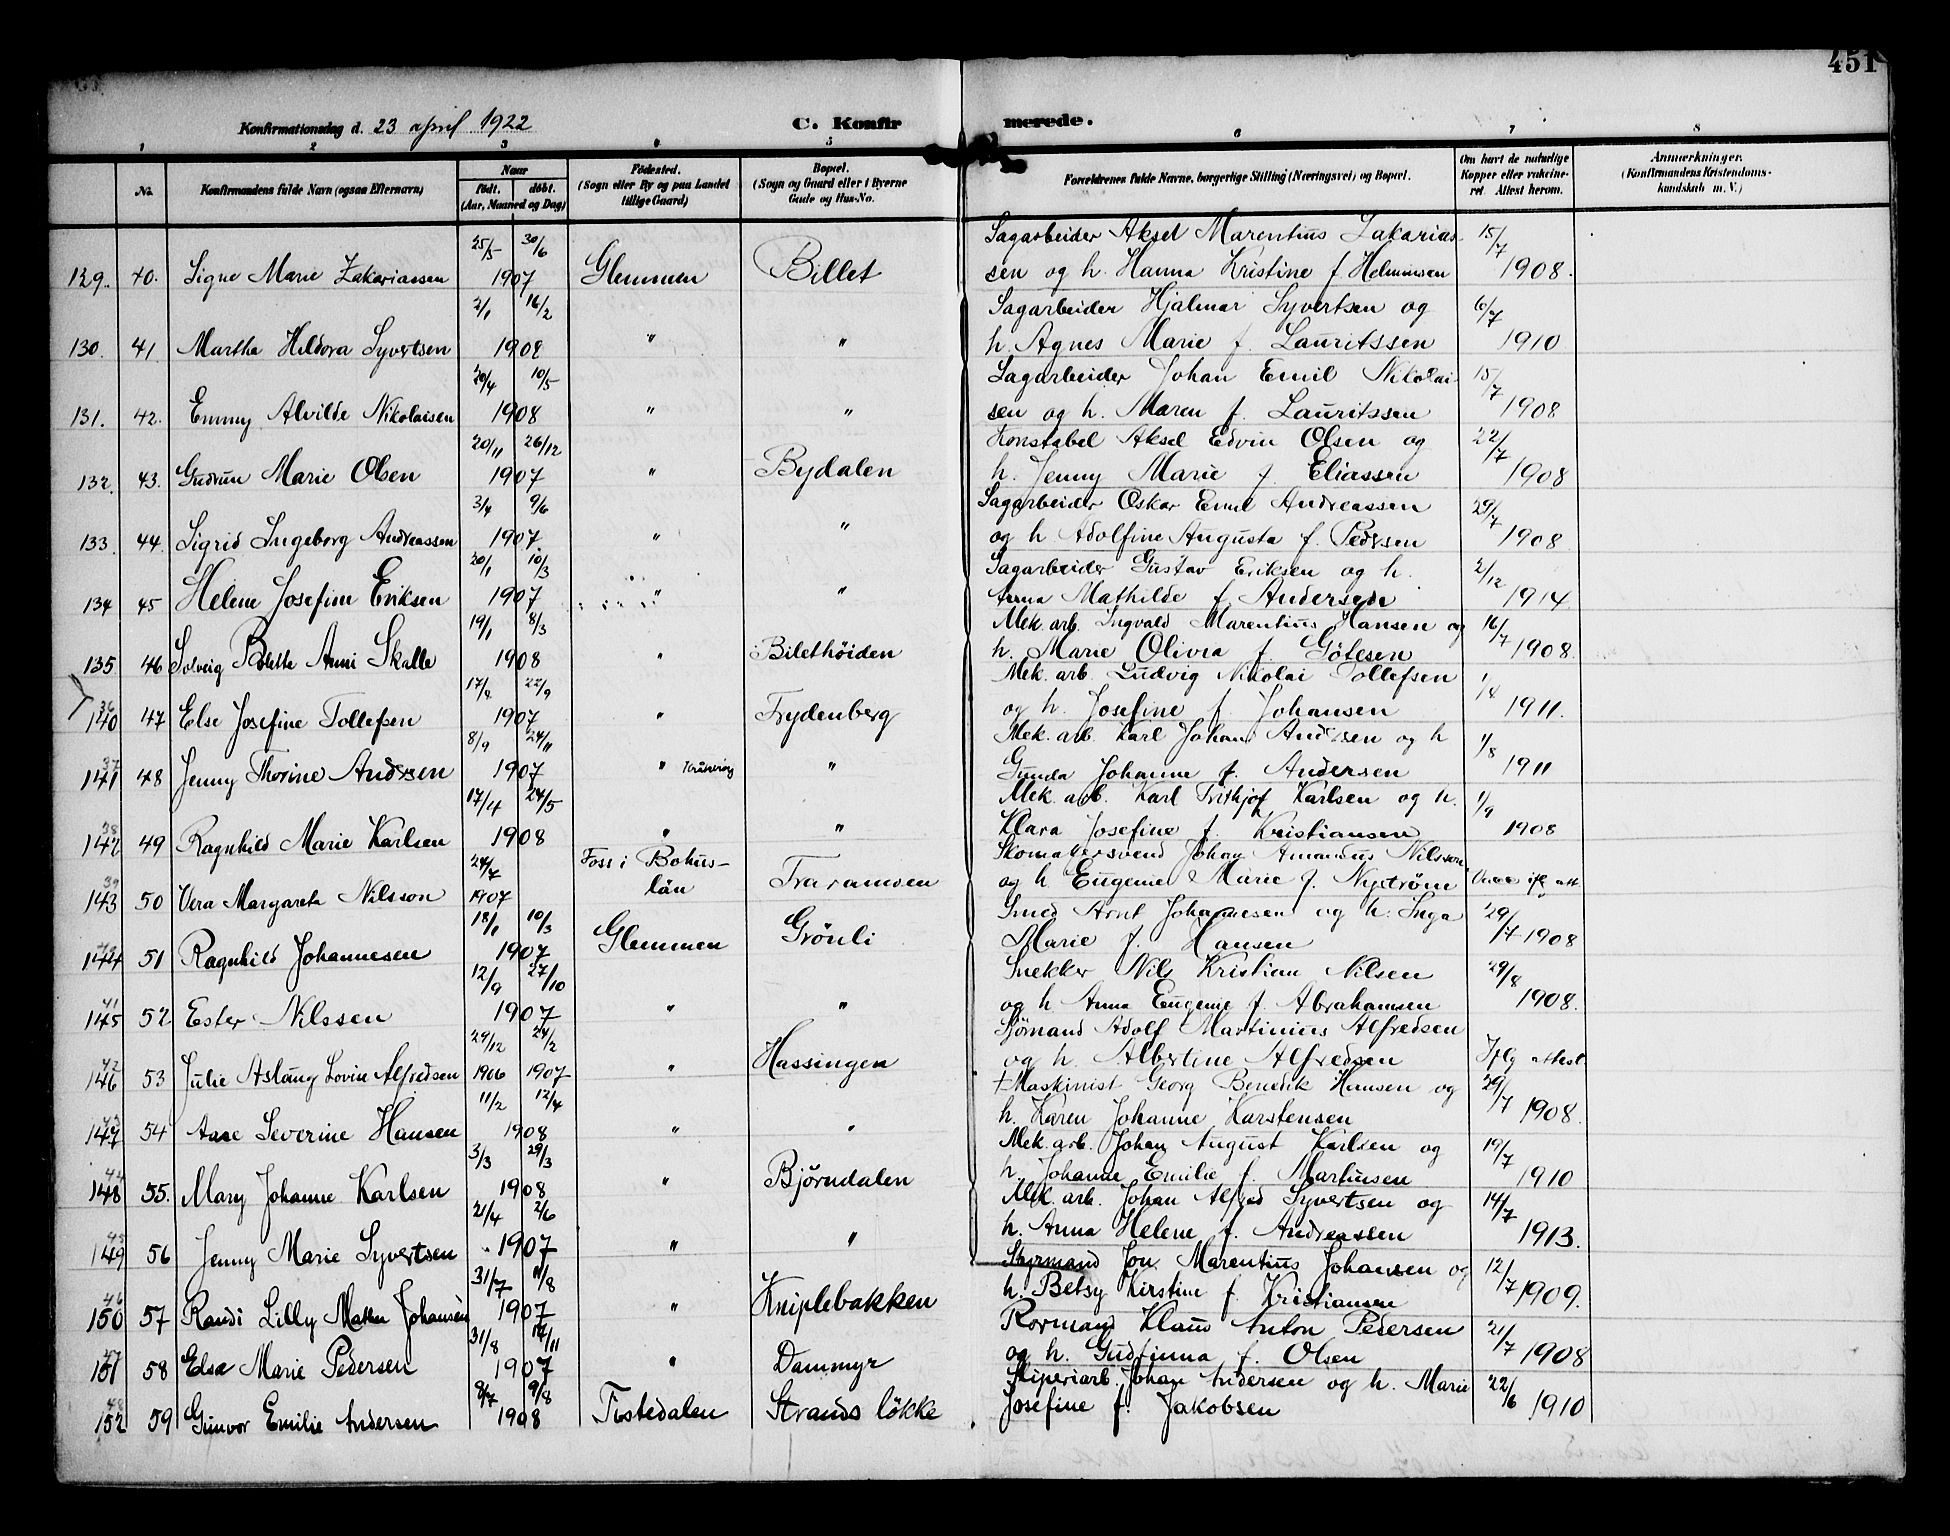 451
Konfirmationsdag d. 23 april 1922
C. Konfirmerede.
1 2 3 4 5 6 7 8
No.
Konfirmandens fulde Navn (ogsaa Efternavn)
Naar
født. døbt.
(Aar, Maaned og Dag)
Fødested.
(Sogn eller By og paa Landet
tillige Gaard)
Bopæl.
(Sogn og Gaard eller i Byerne
Gade og Hus-No.
Forældrenes fulde Navne, borgerlige Stilling (Næringsvei) og Bopæl.
Om havt de naturlige
Kopper eller vakcine-
ret. Attest herom.
Anmerkninger.
(Konfirmandens Kristendoms-
kundskab m. V.)
25/5 30/6 Sagarbeider Aksel Marentius Zakarias- 15/7
129. 40. Signe Marie Zakariassen 1907 Glemmen Billet sen og h. Hanna Kristine f. Helminsen 1908.
2/1 16/2 Sagarbeider Hjalmar Syvertsen og 6/7
130. 41. Martha Hildora Syvertsen 1908 " " h. Agnes Marie f. Lauritssen 1910
20/4 10/5 Sagarbeider Johan Emil Nikolai- 15/7
131. 42. Emmy Alvilde Nikolaisen 1908 " " sen og h. Maren f. Lauritssen 1908
20/11 26/12 Konstabel Aksel Edvin Olsen og 22/7
132. 43. Gudrun Marie Olsen 1907 " Bydalen h. Jenny Marie f. Eliassen 1908
3/4 9/6 Sagarbeider Oskar Emil Andreassen 29/7
133. 44. Sigrid Ingeborg Andreassen 1907 " " og h Adolfine Augusta f. Pedersen 1908
20/1 10/3 Sagarbeider Gustav Eriksen og h. 2/12
134 45 Helene Josefine Eriksen 1907 " " Anna Mathilde f. Andersen 1914
19/1 8/3 Mek. arb. Ingvald Marentius Hansen og 16/7
135 46 Solveig Bolette Anni Skalle 1908 " Bilethöiden h. Marie Olivia f. Götesen 1908.
17/8 22/9 Mek. arb. Ludvig Nikolai Tollefsen 1/4
36
140 47 Else Josefine Tollefsen 1907 " Frydenberg og h. Josefine f. Johansen 1911.
8/9 24/11 Mek. arb. Karl Johan Andersen og h 1/8
37
141 48 Jenny Thorine Andersen 1907 " Kråkerøy " Gunda Johanne f. Andersen 1911
17/4 24/5 Mek. arb. Karl Frithjof Karlsen og h. 1/9
38
142 49 Ragnhild Marie Karlsen 1908 " " Klara Josefine f. Kristiansen 1908
24/7 Foss i Bohus- Skomakersvend Johan Amandus Nilsson
39
143 50 Vera Margareta Nilsson 1907 län Traramsen og h Eugenie Marie f. Nyström
18/1 10/3 Smed Arnt Johannesen og h. Inga 29/7
144 51 Ragnhild Johannesen 1907 Glemmen Grönli Marie f. Hansen 1908
12/9 27/10 Snekker Nils Kristian Nilsen 29/8
41
145 52 Ester Nilssen 1907 " " og h Anna Eugenie f. Abrahamsen 1908.
29/12 24/2 Sjømand Adolf Martinius Alfredsen
42
146 53 Julie Aslaug Lovin Alfredsen 1906 1907 " Hassingen og h. Albertine Alfredsen Iflg attest
11/2 12/4 † Maskinist Georg Benedik Hansen og 29/7
43
147 54 Aase Severine Hansen 1908 " " h. Karen Johanne Karstensen 1908.
3/3 29/3 Mek. arb. Johan August Karlsen og 19/7
44
148 55. Mary Johanne Karlsen 1908 " Bjørndalen h. Johanne Emilie f. Martinsen 1910
21/4 2/6 Mek. arb. Johan Alfred Syvertsen og 14/7
45
149 56 Jenny Marie Syvertsen 1907 " " h. Anna Helene f. Andreassen 1913.
31/7 11/8 Styrmand Jon. Marentius Johansen og 12/7
46
150 57 Randi Lilly Mathea Johansen 1907 " Kniplebakken h. Betsy Kirstine f. Kristiansen 1909.
31/8 17/11 Rormand Klaus Anton Pedersen 21/7
47
151 58 Elsa Marie Pedersen 1907 " Dammyr og h. Gudfinna f. Olsen 1908
8/7 9/8 Sliperiarb. Johan Andersen og h. Marie 22/6
48
152 59 Gunvor Emilie Andersen 1908 Tistedalen Strands løkke Josefine f. Jakobsen 1910